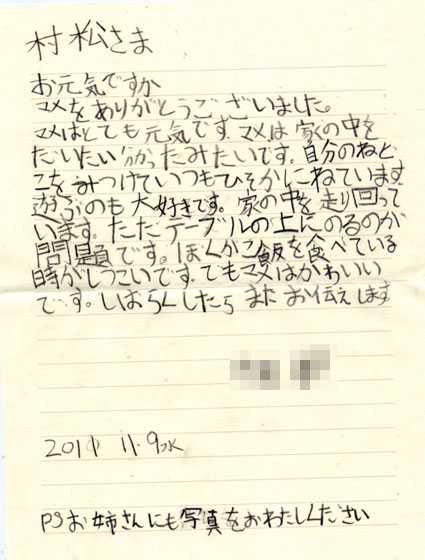 村松さま
お元気ですか
マメをありがとうございました。
マメはとても元気です。マメは家の中を
だいたい分かったみたいです。自分のねど
こをみつけていつもひそかにねています。
遊ぶのも大好きです。家の中を走り回って
います。ただテーブルの上にのるのが
問題です。ぼくがご飯を食べている
時がしつこいです。でもマメはかわいい
です。しばらくしたらまたお伝えします
2011 11.9水
PSお姉さんにも写真をおわたしください